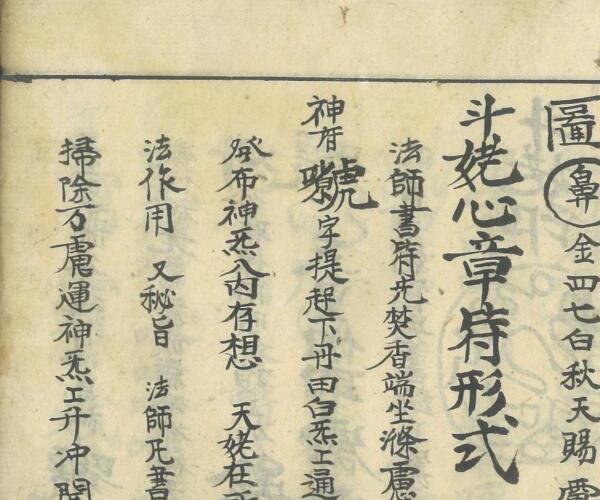 圖 鼻 金四七白秋天賜
斗姥心章符形式
法師書符先焚香端坐滌慮
神府 字提起下丹田白炁上通
發布神炁入內存想 天姥在
法作用 又秘旨 法師凡書
掃除万慮運神炁上升冲開